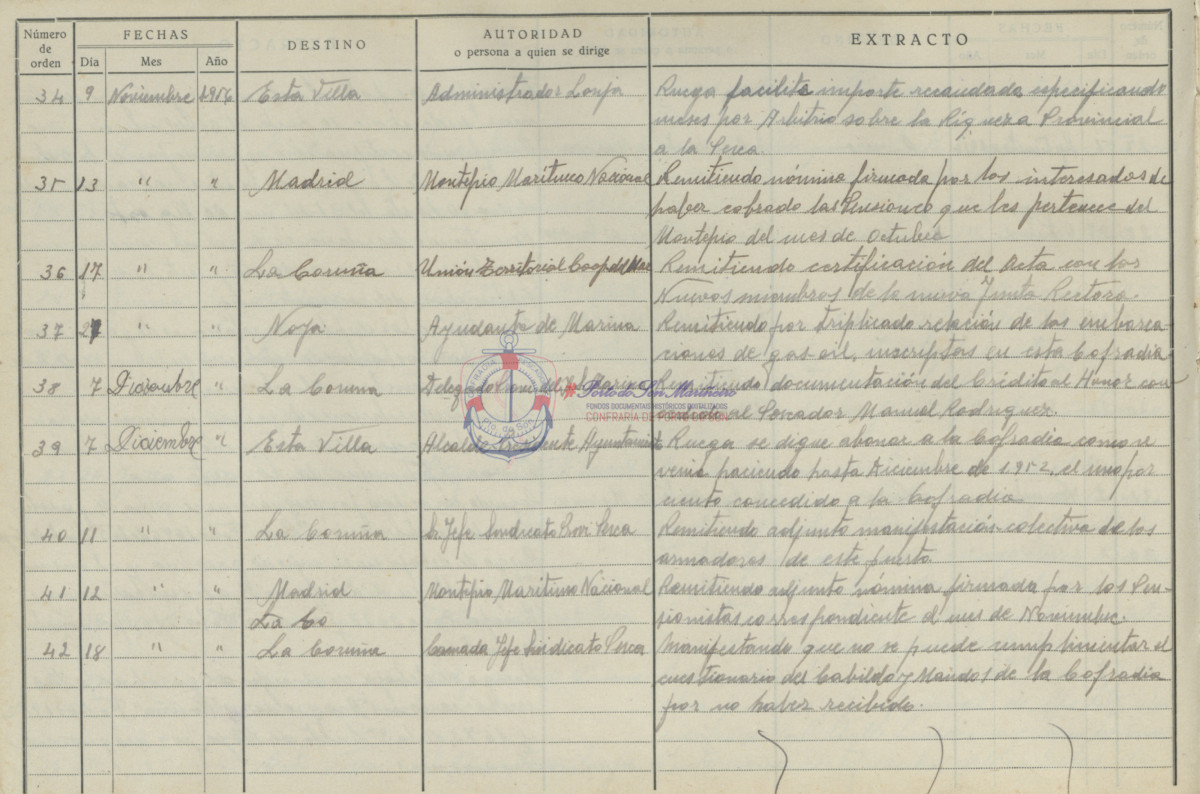 Número de orden FECHAS DESTINO AUTORIDAD o persona a quien se dirige EXTRACTO
Día Mes Año
34 9 Noviembre 1956 Esta Villa Administrador Lonja Ruega facilite importe recaudado especificando
meses por Arbitrio sobre la Riqueza Provincial
a la Pesca.
35 13 " " Madrid Montepio Maritimo Nacional Remitiendo nómina firmada por los interesados de
haber cobrado las Pensiones que les pertenece del
Montepio del mes de Octubre
36 17 " " La Coruña Unión Territorial Coop del Mar Remitiendo certificación del Acta con los
Nuevos miembros de la nueva Junta Rectora.
37 " " Noya Ayudante de Marina Remitiendo por triplicado relación de las embarca-
ciones de gas-oil, inscriptas en esta Cofradia
38 7 Diciembre " La Coruna Remitiendo documentación del Crédito al Honor con
al Pescador Manuel Rodriguez.
Porto do Son Mariñeiro
FONDOS DOCUMENTAIS HISTÓRICOS DIXITALIZADOS
CONFRARIA DE PORTO DO SON
39 7 Diciembre " Esta Villa Alcalde Presidente Ayuntamiento Ruega se digne abonar a la Cofradia como se
venia haciendo hasta Diciembre de 1952, el uno por
ciento concedido a la Cofradia.
40 11 " " La Coruña Sr. Jefe Sindicato Prov. Pesca Remitiendo adjunto manifestación colectiva de los
armadores de este puerto.
41 12 " " Madrid Montepio Maritimo Nacional Remitiendo adjunto nómina firmada por los Pen-
La Co sionistas correspondiente al mes de Noviembre.
42 18 " " La Coruña Camada Jefe Sindicato Pesca Manifestando que no se puede cumplimentar el
cuestionario del Cabildo y Mandos de la Cofradia
por no haber recibido.